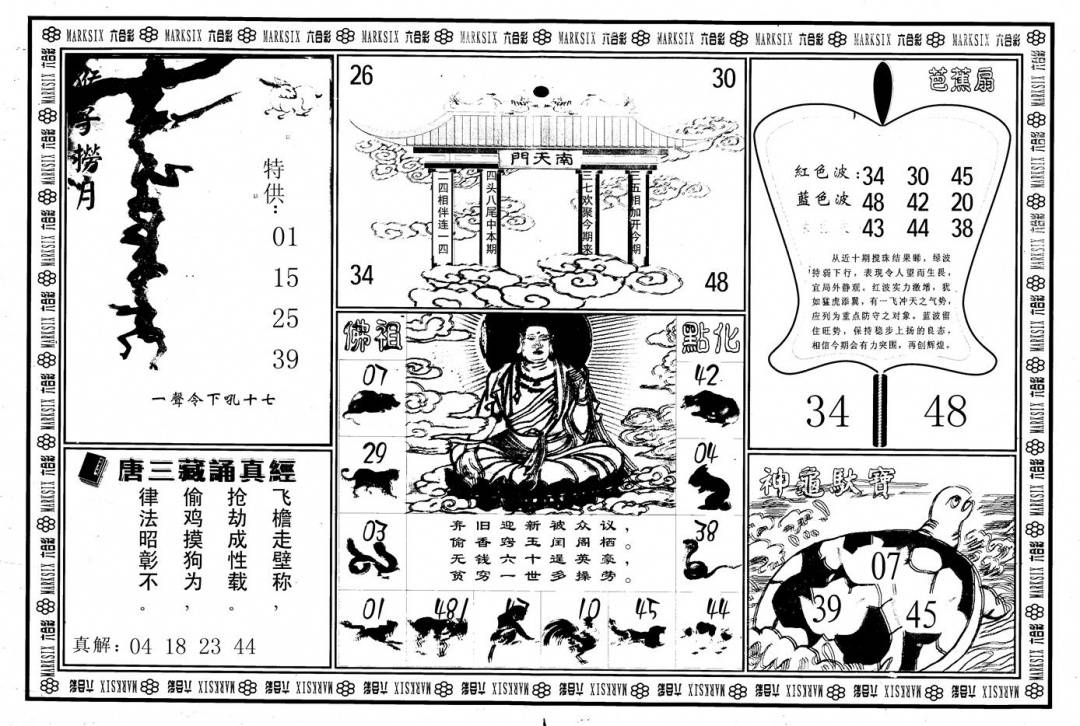 MARKSIX 六合彩 MARKSIX 六合彩 MARKSIX 六合彩 MARKSIX 六合彩 MARKSIX 六合彩 MARKSIX 六合彩 MARKSIX 六合彩 MARKSIX 六合彩 MARKSIX 六合彩 MARKSIX 六合彩
猴子撈月
特供:
01
15
25
39
一聲令下吼十七
26
30
南天門
二四相伴连一四
四头八尾中本期
三七欢聚今期来
三五相加开今期
34
48
芭蕉扇
紅色波:34 30 45
蓝色波 48 42 20
43 44 38
从近十期搅珠结果睇,绿波
特弱下行,表现令人望而生畏,
宜局外静观。红波实力激增,犹
如猛虎添翼,有一飞冲天之气势,
应列为重点防守之对象。蓝波留
住旺势,保持稳步上扬的良态,
相信今期会有力突围,再创辉煌。
34 48
唐三藏誦真經
飞檐走壁称,
抢劫成性载。
偷鸡摸狗为,
律法昭彰不。
真解:04 18 23 44
佛祖
點化
07
42
29
04
03
38
弃旧迎新被众议,
偷香窍玉闰阁栖。
无钱六十逞英豪,
贫穷一世多操劳。
01
10
45
44
神龜馱寶
07
39
45